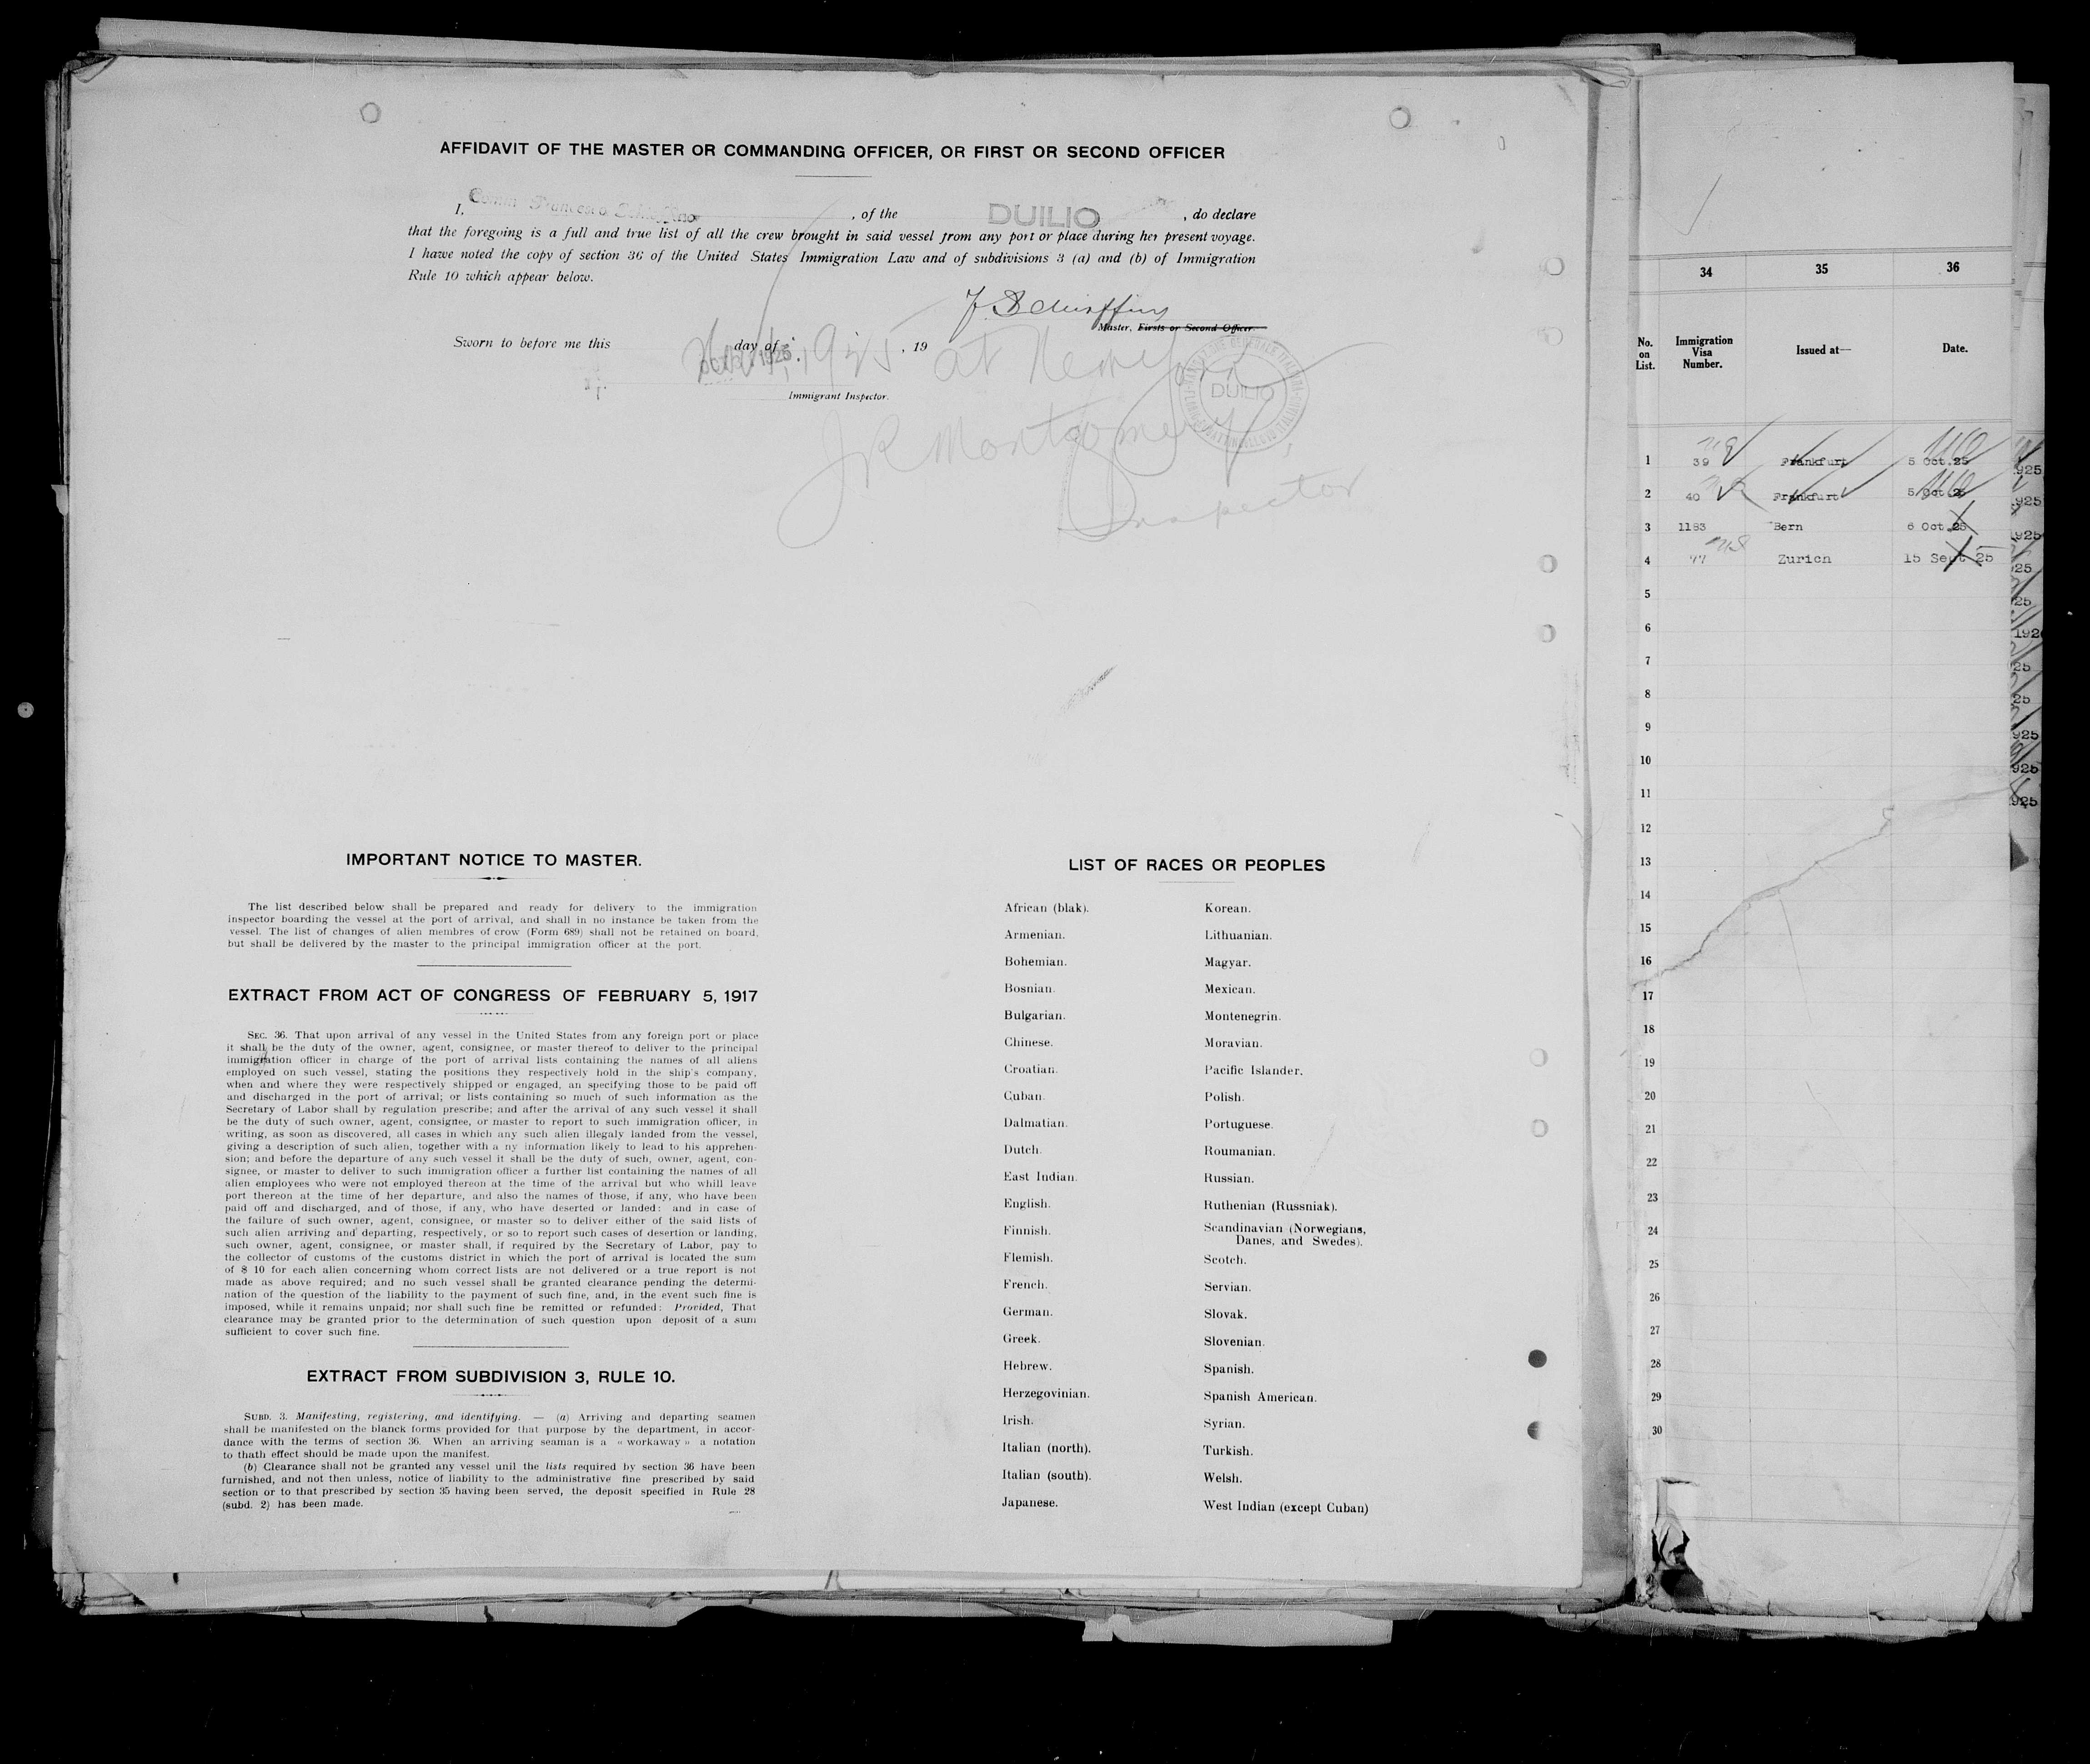 AFFIDAVIT OF THE MASTER OR COMMANDING OFFICER, OR FIRST OR SECOND OFFICER
I, Comm Francesco Schiaffino, of the DUILIO, do declare
that the foregoing is a full and true list of all the crew brought in said vessel from any port or place during her present voyage.
I hawe noted the copy of section 36 of the United States Immigration Law and of subdivisions 3 (a) and (b) of Immigration
Rule 10 which appear below.
F Schiaffino
Master, Firsts or Second Officer.
Sworn to before me this day of , 19
1925 at New York
DUILIO
Immigrant Inspector.
JR Montgomery,
Inspector
IMPORTANT NOTICE TO MASTER.
The list described below shall be prepared and ready for delivery to the immigration
inspector boarding the vessel at the port of arrival, and shall in no instance be taken from the
vessel. The list of changes of alien membres of crow (Form 689) shall not be retained on board,
but shall be delivered by the master to the principal immigration officer at the port.
EXTRACT FROM ACT OF CONGRESS OF FEBRUARY 5, 1917
SEC. 36. That upon arrival of any vessel in the United States from any foreign port or place
it shall be the duty of the owner, agent, consignee, or master thereof to deliver to the principal
immigration officer in charge of the port of arrival lists containing the names of all aliens
employed on such vessel, stating the positions they respectively hold in the ship's company,
when and where they were respectively shipped or engaged, an specifying those to be paid off
and discharged in the port of arrival; or lists containing so much of such information as the
Secretary of Labor shall by regulation prescribe; and after the arrival of any such vessel it shall
be the duty of such owner, agent, consignee, or master to report to such immigration officer, in
writing, as soon as discovered, all cases in which any such alien illegally landed from the vessel,
giving a description of such alien, together with a ny information likely to lead to his apprehen-
sion; and before the departure of any such vessel it shall be the duty of such, owner, agent, con-
signee, or master to deliver to such immigration officer a further list containing the names of all
alien employees who were not employed thereon at the time of the arrival but who whill leave
port thereon at the time of her departure, and also the names of those, if any, who have been
paid off and discharged, and of those, if any, who have deserted or landed: and in case of
the failure of such owner, agent, consignee, or master so to deliver either of the said lists of
such alien arriving and departing, respectively, or so to report such cases of desertion or landing,
such owner, agent, consignee, or master shall, if required by the Secretary of Labor, pay to
the collector of customs of the customs district in which the port of arrival is located the sum
of $ 10 for each alien concerning whom correct lists are not delivered or a true report is not
made as above required; and no such vessel shall be granted clearance pending the determi-
nation of the question of the liability to the payment of such fine, and, in the event such fine is
imposed, while it remains unpaid; nor shall such fine be remitted or refunded: Provided, That
clearance may be granted prior to the determination of such question upon deposit of a sum
sufficient to cover such fine.
EXTRACT FROM SUBDIVISION 3, RULE 10.
SUBD. 3. Manifesting, registering, and identifying. — (a) Arriving and departing seamen
shall be manifested on the blanck forms provided for that purpose by the department, in accor-
dance with the terms of section 36. When an arriving seaman is a « workaway » a notation
to thath effect should be made upon the manifest.
(b) Clearance shall not be granted any vessel unil the lists required by section 36 have been
furnished, and not then unless, notice of liability to the administrative fine prescribed by said
section or to that prescribed by section 35 having been served, the deposit specified in Rule 28
(subd. 2) has been made.
LIST OF RACES OR PEOPLES
African (blak). Korean.
Armenian. Lithuanian.
Bohemian. Magyar.
Bosnian. Mexican.
Bulgarian. Montenegrin.
Chinese. Moravian.
Croatian. Pacific Islander.
Cuban. Polish.
Dalmatian. Portuguese.
Dutch. Roumanian.
East Indian. Russian.
English. Ruthenian (Russniak).
Finnish. Scandinavian (Norwegians,
Danes, and Swedes).
Flemish. Scotch.
French. Servian.
German. Slovak.
Greek. Slovenian.
Hebrew. Spanish.
Herzegovinian. Spanish American.
Irish. Syrian.
Italian (north). Turkish.
Italian (south). Welsh.
Japanese. West Indian (except Cuban)
34 35 36
No. on List. Immigration Visa Number. Issued at— Date.
1 39 Frankfurt 5 Oct.25
2 40 Frankfurt 5 Oct.25
3 1183 Bern 6 Oct.25
4 77 Zurich 15 Sept 25
5
6
7
8
9
10
11
12
13
14
15
16
17
18
19
20
21
22
23
24
25
26
27
28
29
30
925
925
925
25
25
192
25
25
925
925
925